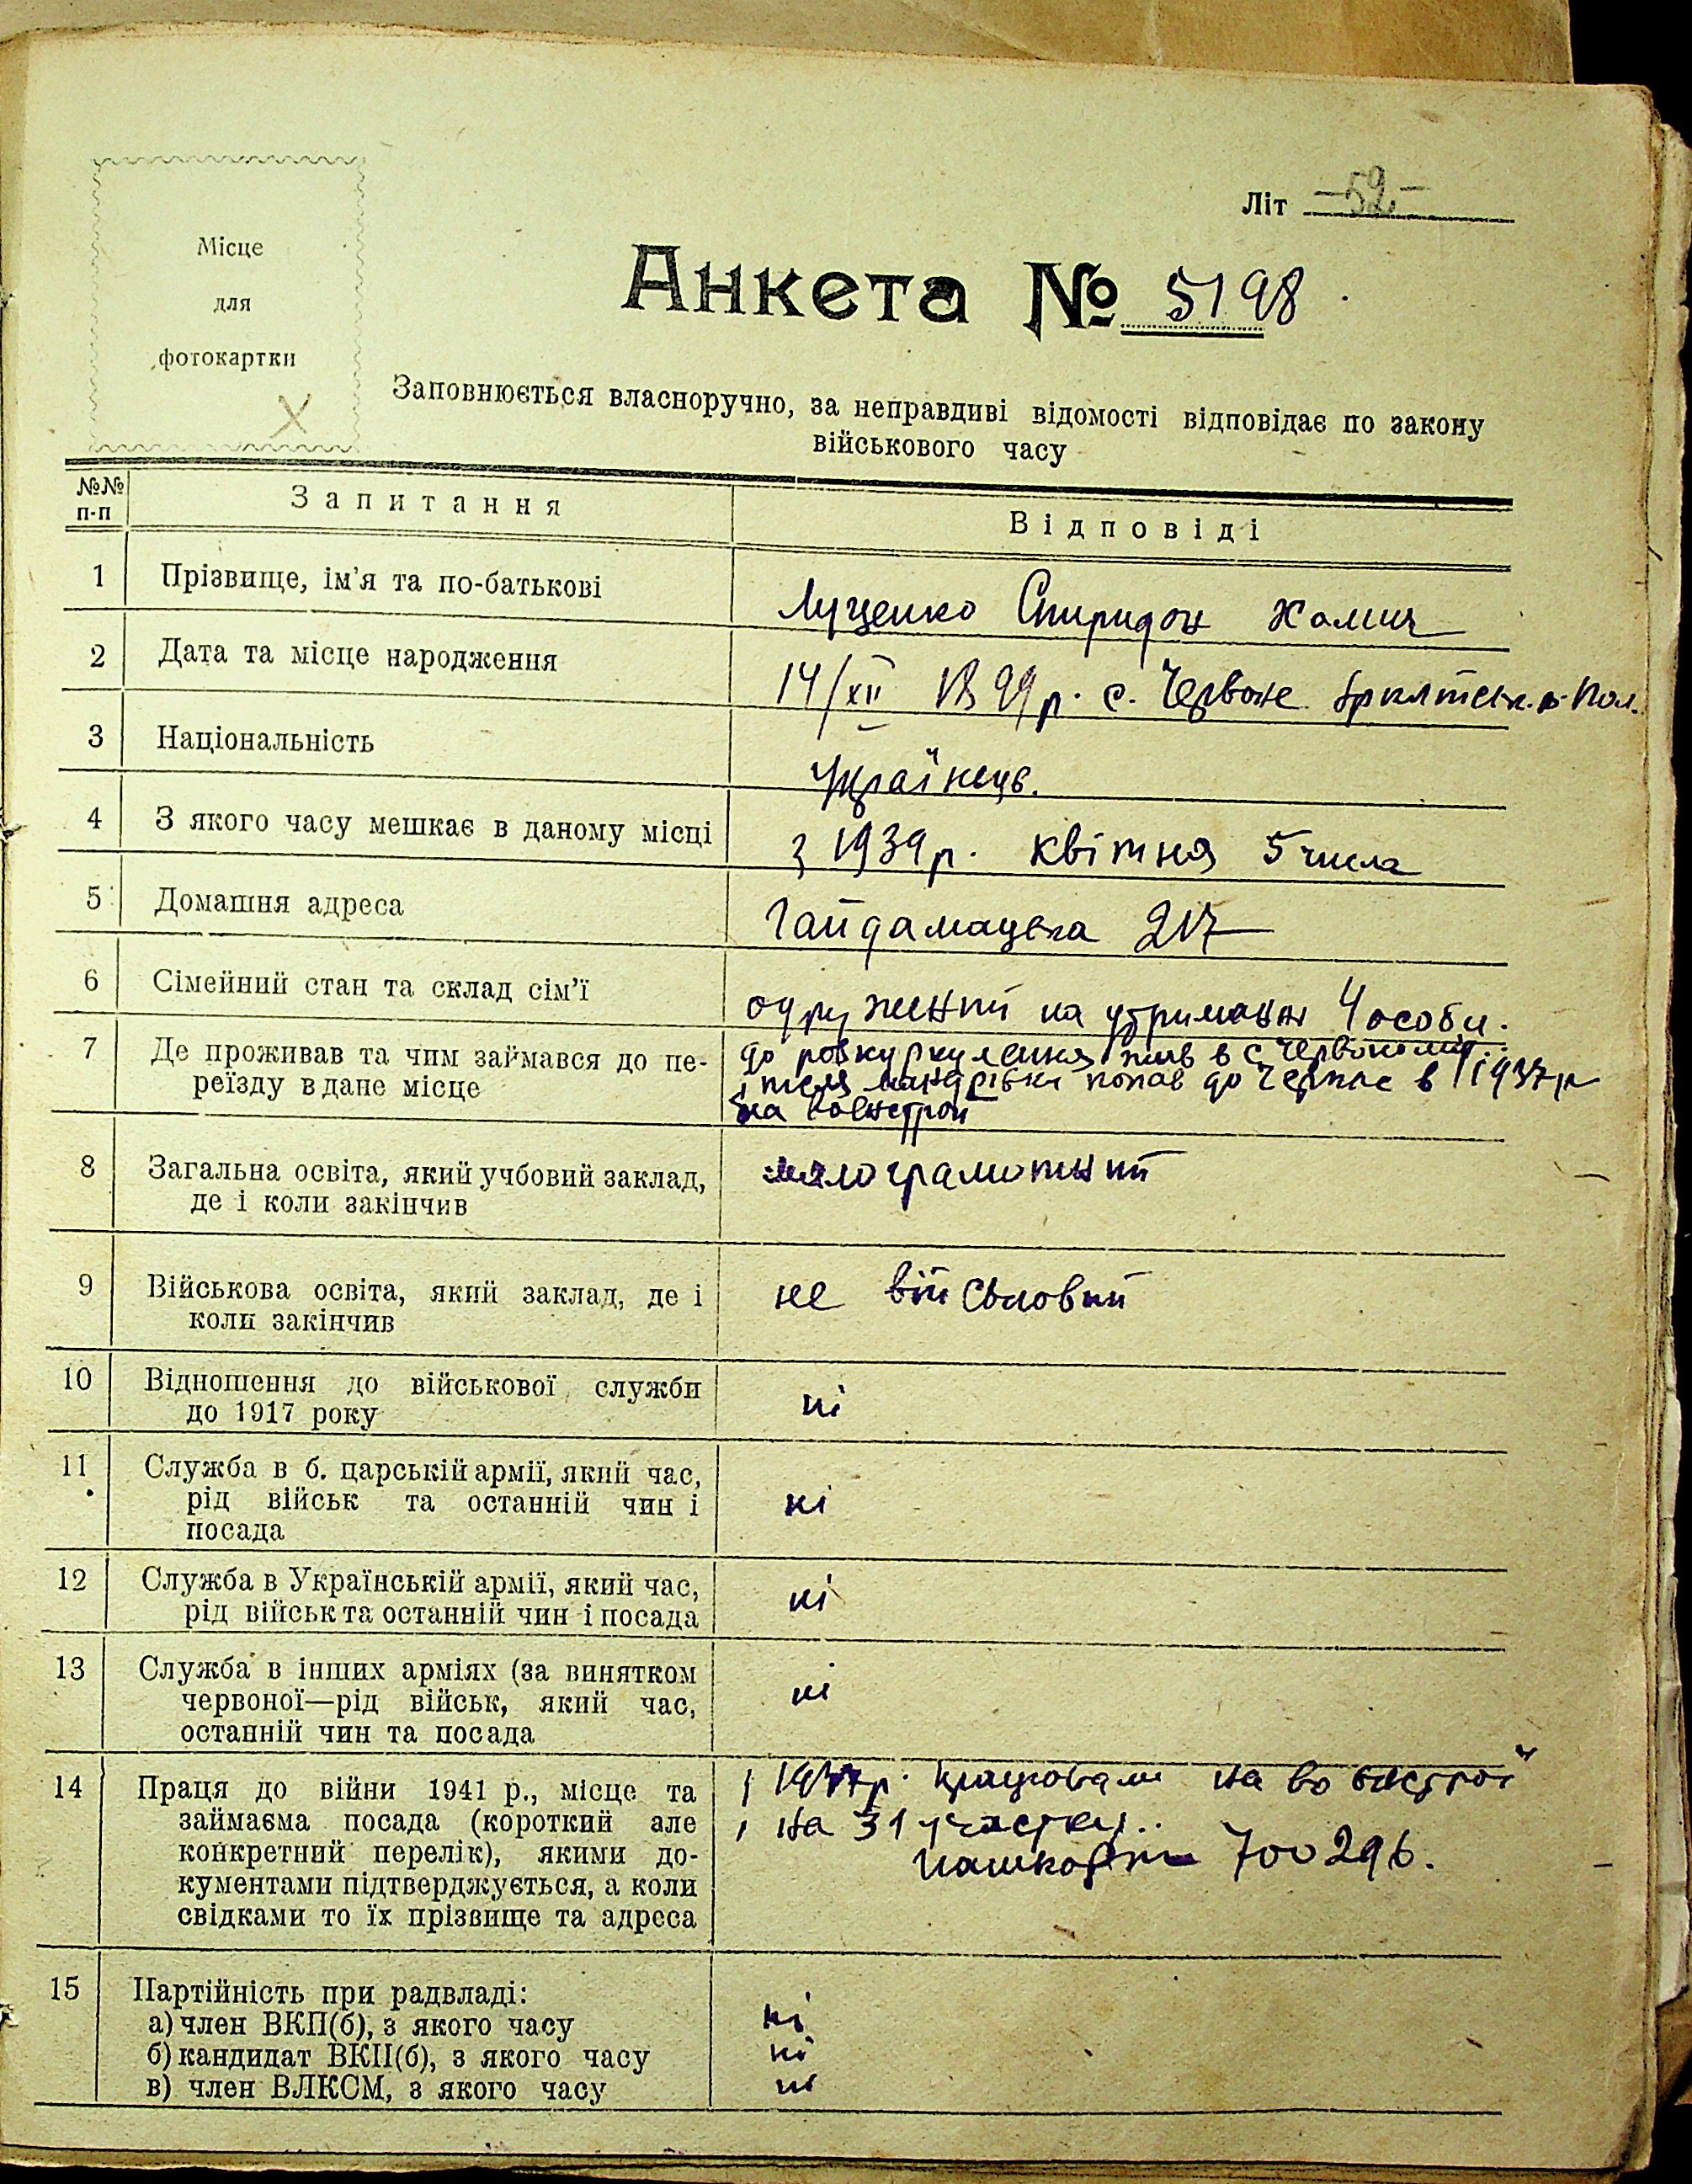 Місце
для
фотокартки
Літ -52-
Анкета № 5198
Заповнюється власноручно, за неправдиві відомості відповідає по закону
військового часу
№№ п-п Запитання Відповіді
1 Прізвище, ім'я та по-батькові Луценко Спиридон Хомич
2 Дата та місце народження 14/XII 1899 р. с. Червоне Пол.
3 Національність Українець.
4 З якого часу мешкає в даному місці з 1939 р. квітня 5 числа
5 Домашня адреса Гайдамацька 217
6 Сімейний стан та склад сім'ї одружений на утриман 4 особи.
7 Де проживав та чим займався до пе- до розкуркулення жив в с
реїзду в дане місце і після мандрівки попав до в 1937 р
на
8 Загальна освіта, який учбовий заклад, малограмотний
де і коли закінчив
9 Військова освіта, який заклад, де і не військовий
коли закінчив
10 Відношення до військової служби ні
до 1917 року
11 Служба в б. царській армії, який час, ні
рід військ та останній чин і
посада
12 Служба в Українській армії, який час, ні
рід військ та останній чин і посада
13 Служба в інших арміях (за винятком ні
червоної—рід військ, який час,
останній чин та посада
14 Праця до війни 1941 р., місце та на
займаєма посада (короткий але на 31 участку..
конкретний перелік), якими до- 700296.
кументами підтверджується, а коли
свідками то їх прізвище та адреса
15 Партійність при радвладі:
а) член ВКП(б), з якого часу ні
б) кандидат ВКП(б), з якого часу ні
в) член ВЛКСМ, з якого часу ні